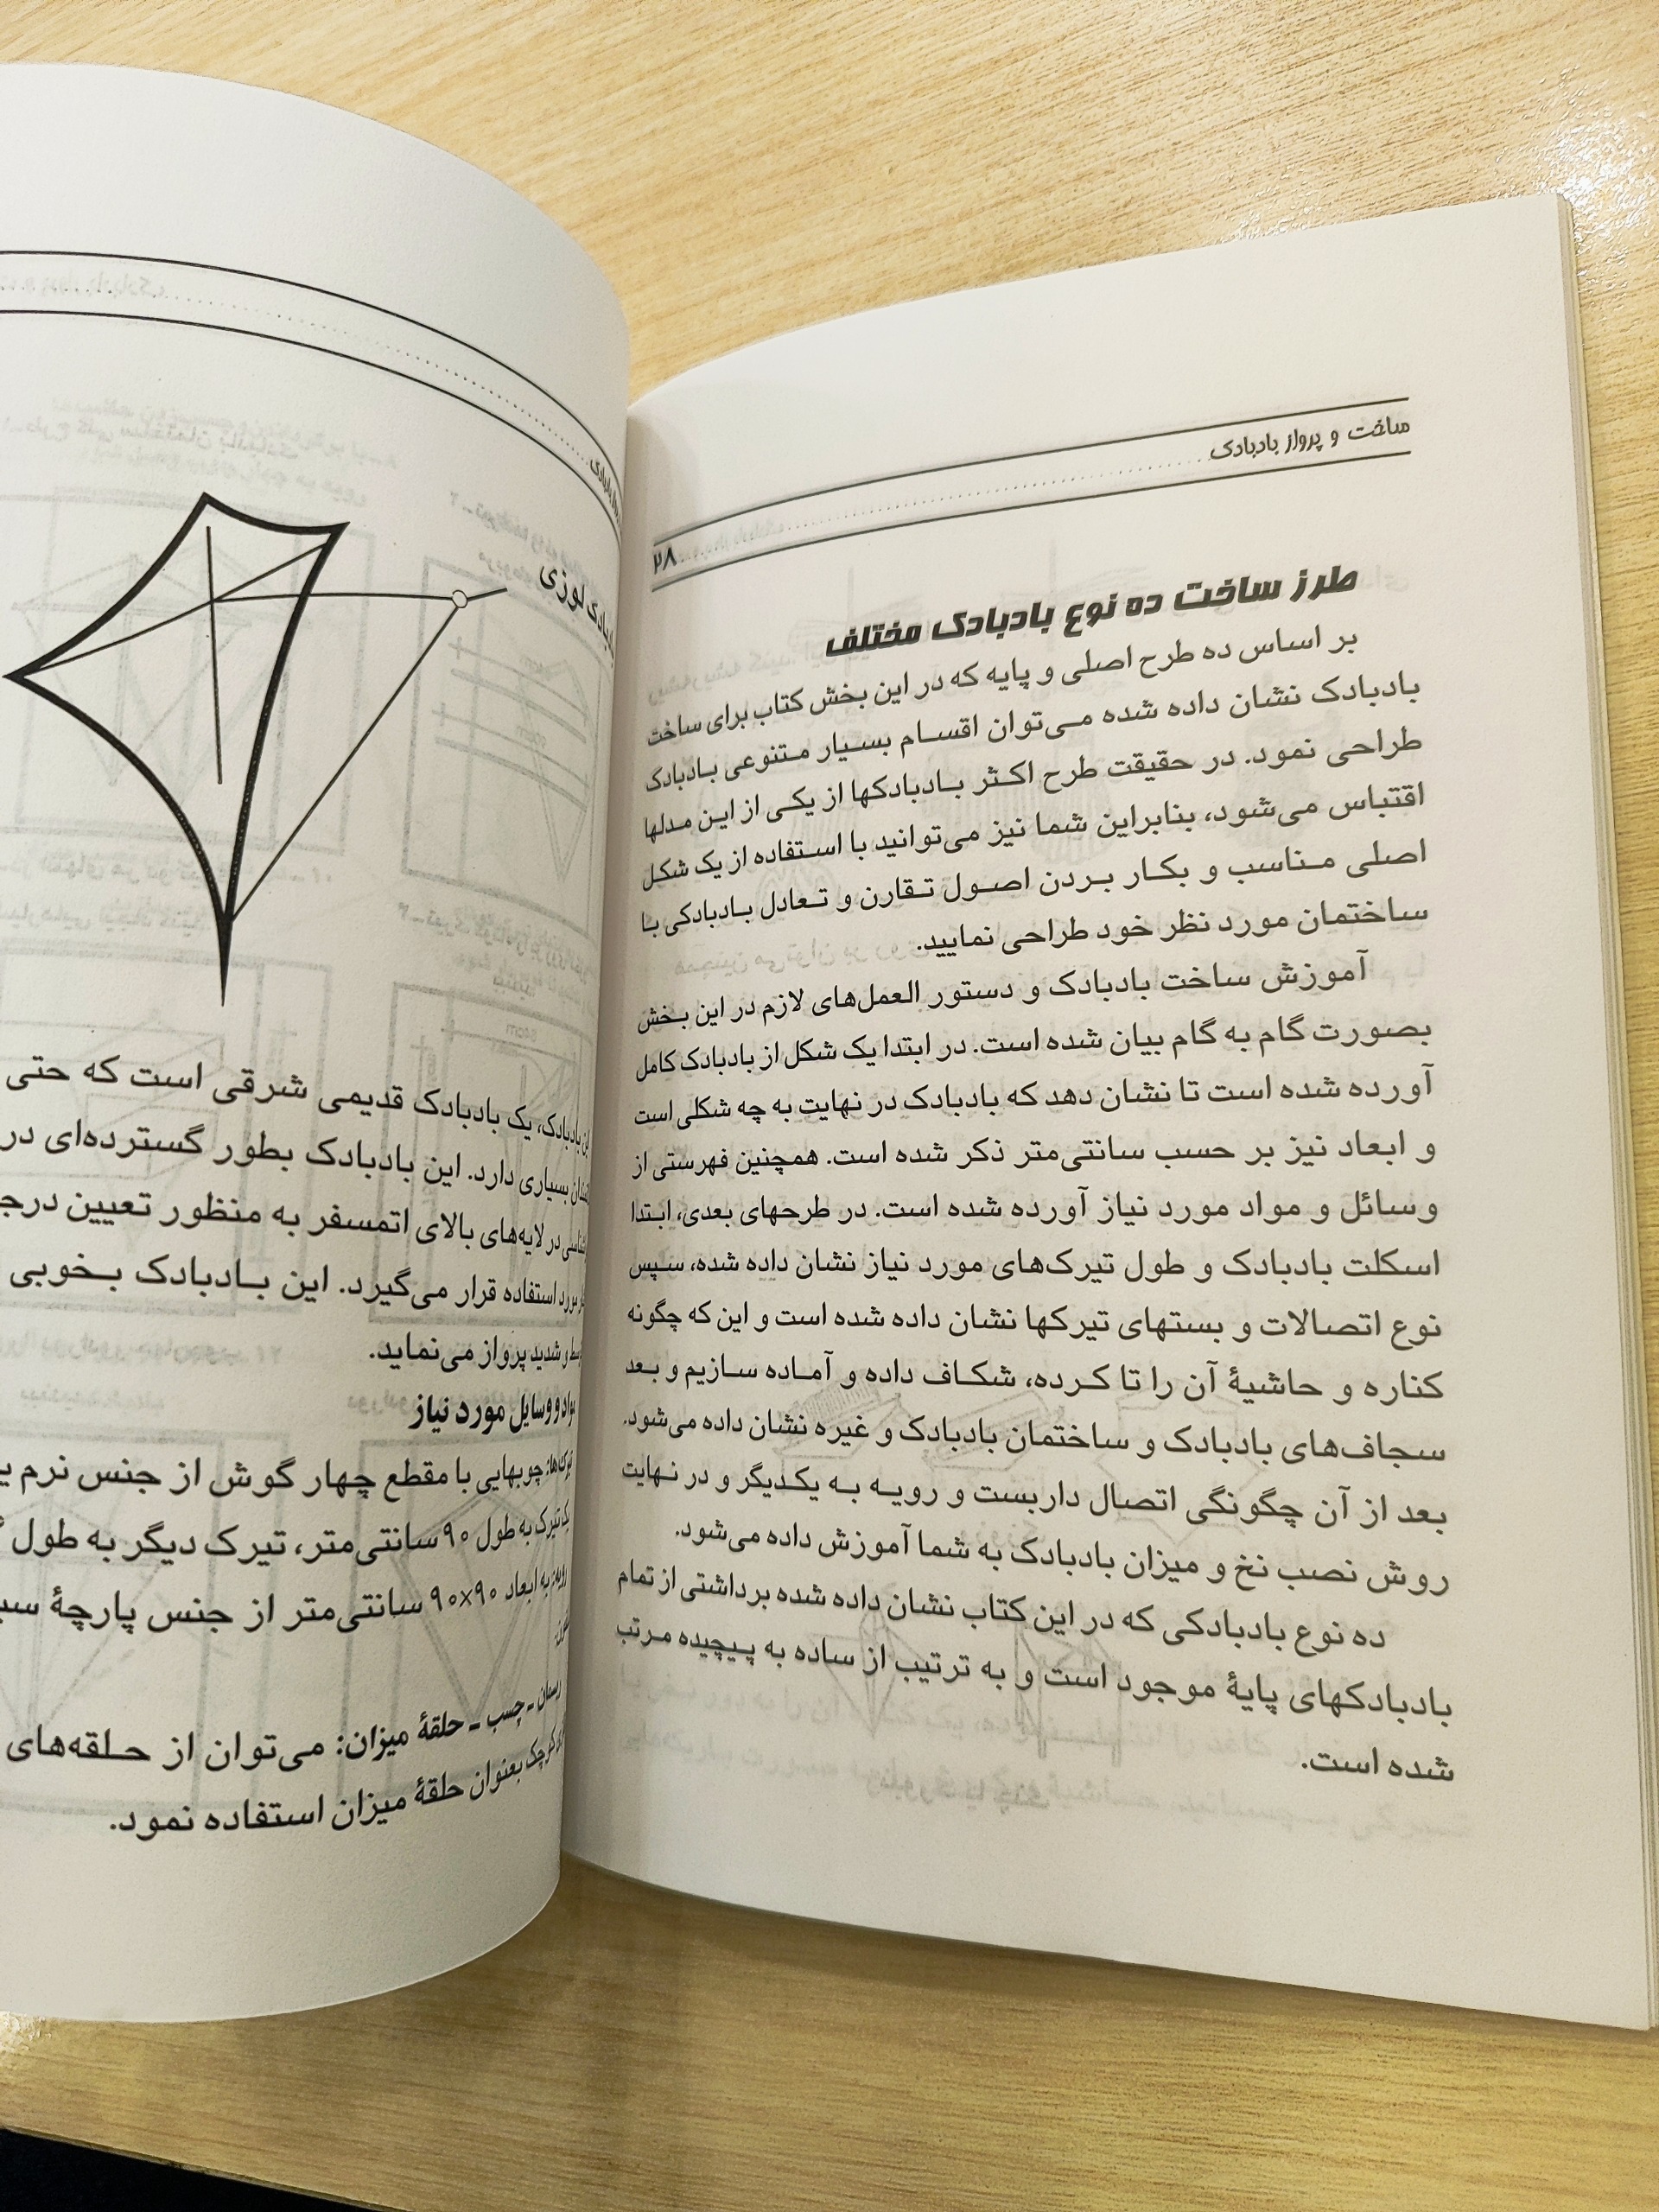 ساخت و پرواز بادبادک
۲۸
طرز ساخت ده نوع بادبادک مختلف
بر اساس ده طرح اصلی و پایه که در این بخش کتاب برای ساخت
بادبادک نشان داده شده می‌توان اقسام بسیار متنوعی بادبادک
طراحی نمود. در حقیقت طرح اکثر بادبادکها از یکی از این مدلها
اقتباس می‌شود، بنابراین شما نیز می‌توانید با استفاده از یک شکل
اصلی مناسب و بکار بردن اصول تقارن و تعادل بادبادکی با
ساختمان مورد نظر خود طراحی نمایید.
آموزش ساخت بادبادک و دستور العمل‌های لازم در این بخش
بصورت گام به گام بیان شده است. در ابتدا یک شکل از بادبادک کامل
آورده شده است تا نشان دهد که بادبادک در نهایت به چه شکلی است
و ابعاد نیز بر حسب سانتی‌متر ذکر شده است. همچنین فهرستی از
وسائل و مواد مورد نیاز آورده شده است. در طرحهای بعدی، ابتدا
اسکلت بادبادک و طول تیرک‌های مورد نیاز نشان داده شده، سپس
نوع اتصالات و بستهای تیرکها نشان داده شده است و این که چگونه
کناره و حاشیهٔ آن را تا کرده، شکاف داده و آماده سازیم و بعد
سجاف‌های بادبادک و ساختمان بادبادک و غیره نشان داده می‌شود.
بعد از آن چگونگی اتصال داربست و رویه به یکدیگر و در نهایت
روش نصب نخ و میزان بادبادک به شما آموزش داده می‌شود.
ده نوع بادبادکی که در این کتاب نشان داده شده برداشتی از تمام
بادبادکهای پایهٔ موجود است و به ترتیب از ساده به پیچیده مرتب
شده است.
بادبادک لوزی
این بادبادک، یک بادبادک قدیمی شرقی است که حتی
بسیاری دارد. این بادبادک بطور گسترده‌ای در
در لایه‌های بالای اتمسفر به منظور تعیین
مورد استفاده قرار می‌گیرد. این بادبادک بخوبی
و شدید پرواز می‌نماید.
مواد و وسایل مورد نیاز
تیرک‌ها: چوبهایی با مقطع چهار گوش از جنس نرم
یک تیرک به طول ۹۰ سانتی‌متر، تیرک دیگر به طول
رویه: به ابعاد ۹۰×۹۰ سانتی‌متر از جنس پارچهٔ
ریسمان ـ چسب ـ حلقهٔ میزان: می‌توان از حلقه‌های
کوچک بعنوان حلقهٔ میزان استفاده نمود.